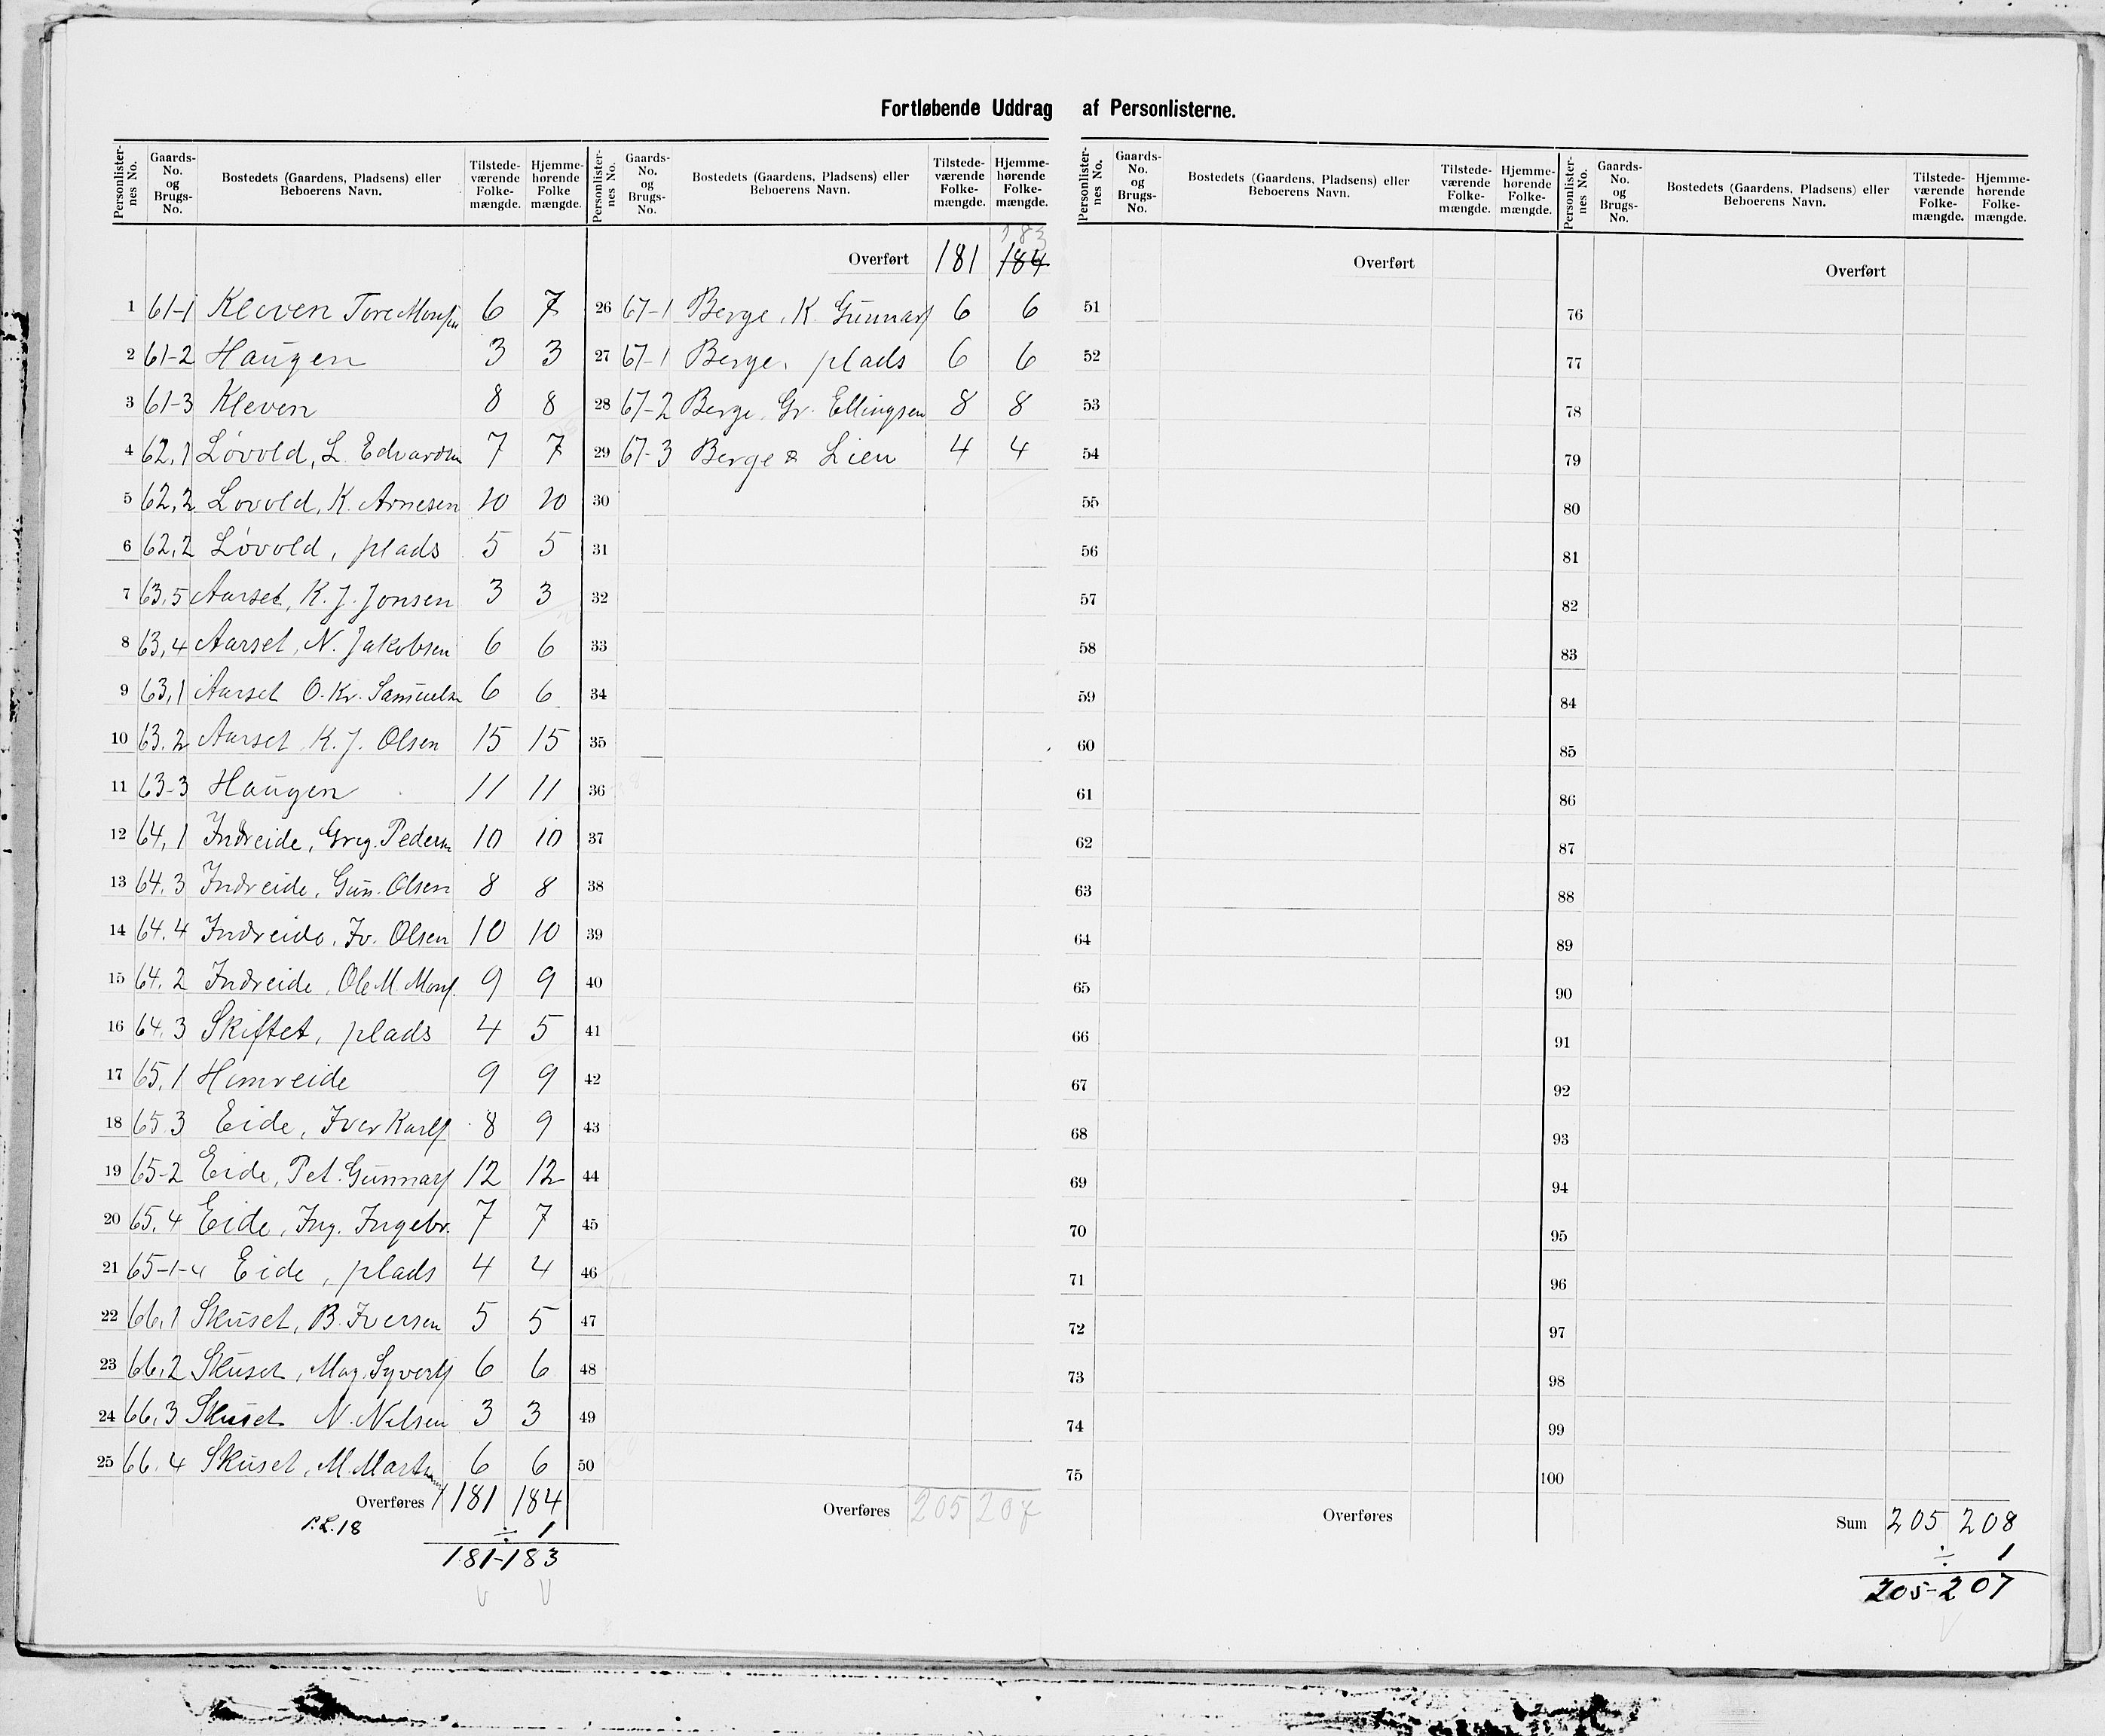 Fortløbende Uddrag af Personlisterne.
Personlister-nes No. | Gaards-No. og Brugs-No. | Bostedets (Gaardens, Pladsens) eller Beboerens Navn. | Tilstede-værende Folke-mængde. | Hjemme-hørende Folke mængde.
1 61-1 Kleven Tore Monsen 6 7
2 61-2 Haugen 3 3
3 61-3 Kleven 8 8
4 62,1 Løvold, L Edvardsen 7 7
5 62,2 Lovold, K. Arnesen 10 10
6 62,2 Løvold, plads 5 5
7 63,5 Aarset, K. J. Jonsen 3 3
8 63,4 Aarset, N. Jakobsen 6 6
9 63,1 Aarset O. Kr. Samuelsn 6 6
10 63.2 Aarset, K. J. Olsen 15 15
11 63-3 Haugen 11 11
12 64,1 Indreide, Greg. Pedersn 10 10
13 64,3 Indreide, Gun. Olsen 8 8
14 64.4 Indreide, Iv. Olsen 10 10
15 64.2 Indreide, Ole M. Mons. 9 9
16 64.3 Skiftet, plads 4 5
17 65.1 Himreide 9 9
18 65.3 Eide, Iver Karls 8 9
19 65-2 Eide, Pet. Gunnars 12 12
20 65.4 Eide, Ing. Ingebr. 7 7
21 65-1-4 Eide, plads 4 4
22 66,1 Skuset, B. Iversen 5 5
23 66,2 Skuset, Mag. Syverts 6 6
24 66,3 Skuset N. Nilsen 3 3
25 66.4 Skuset, M. Martin 6 6
Overføres 181 184
P.L.18 ÷ 1
181-183
Personlister-nes No. | Gaards-No. og Brugs-No. | Bostedets (Gaardens, Pladsens) eller Beboerens Navn. | Tilstede-værende Folke-mængde. | Hjemme-hørende Folke-mængde.
183
Overført 181 184
26 67-1 Berge, K. Gunnars 6 6
27 67-1 Berge, plads 6 6
28 67-2 Berge, Gr. Ellingsen 8 8
29 67-3 Berge & Lien 4 4
30
31
32
33
34
35
36
37
38
39
40
41
42
43
44
45
46
47
48
49
50
Overføres 205 207
Personlister-nes No. | Gaards-No. og Brugs-No. | Bostedets (Gaardens, Pladsens) eller Beboerens Navn. | Tilstede-værende Folke-mængde. | Hjemme-hørende Folke-mængde.
Overført
51
52
53
54
55
56
57
58
59
60
61
62
63
64
65
66
67
68
69
70
71
72
73
74
75
Overføres
Personlister-nes No. | Gaards-No. og Brugs-No. | Bostedets (Gaardens, Pladsens) eller Beboerens Navn. | Tilstede-værende Folke-mængde. | Hjemme-hørende Folke-mængde.
Overført
76
77
78
79
80
81
82
83
84
85
86
87
88
89
90
91
92
93
94
95
96
97
98
99
100
Sum 205 208
÷ 1
205-207